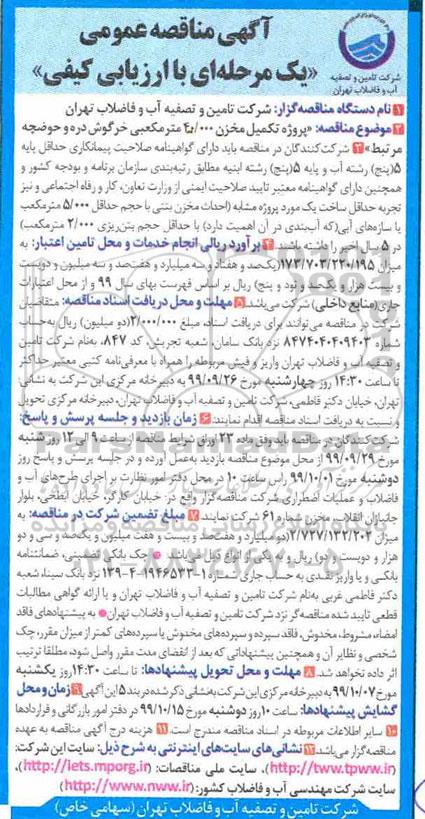 آگهی مناقصه عمومی
«یک مرحله‌ای با ارزیابی کیفی»
شرکت تامین و تصفیه
آب و فاضلاب تهران
1 نام دستگاه مناقصه‌گزار: شرکت تامین و تصفیه آب و فاضلاب تهران
2 موضوع مناقصه: «پروژه تکمیل مخزن ۲۰/۰۰۰ مترمکعبی خرگوش دره و حوضچه
مرتبط» 3 شرکت‌کنندگان در مناقصه باید دارای گواهینامه صلاحیت پیمانکاری حداقل پایه
۵(پنج) رشته آب و پایه ۵(پنج) رشته ابنیه مطابق رتبه‌بندی سازمان برنامه و بودجه کشور و
همچنین دارای گواهینامه معتبر تایید صلاحیت ایمنی از وزارت تعاون، کار و رفاه اجتماعی و نیز
تجربه حداقل ساخت یک مورد پروژه مشابه (احداث مخزن بتنی با حجم حداقل ۵/۰۰۰ مترمکعب
یا سازه‌های آبی(که آب‌بندی در آن اهمیت دارد) با حداقل حجم بتن‌ریزی ۲/۰۰۰ مترمکعب)
در ۵ سال اخیر را داشته باشند. 4 برآورد ریالی انجام خدمات و محل تامین اعتبار: به
میزان ۱۷۳/۷۰۳/۲۲۰/۱۹۵(یکصد و هفتاد و سه میلیارد و هفتصد و سه میلیون و دویست
و بیست هزار و یکصد و نود و پنج) ریال بر اساس فهرست بهای سال ۹۹ و از محل اعتبارات
جاری(منابع داخلی) شرکت می‌باشد. 5 مهلت و محل دریافت اسناد مناقصه: متقاضیان
شرکت در مناقصه می‌توانند برای دریافت اسناد، مبلغ ۲/۰۰۰/۰۰۰(دو میلیون) ریال به‌حساب
شماره ۸۴۷۴۰۴۰۴۰۹۴۰۳ نزد بانک سامان، شعبه تجریش، کد ۸۴۷، به‌نام شرکت تامین
و تصفیه آب و فاضلاب تهران واریز و فیش مربوطه را همراه با معرفی‌نامه کتبی معتبر حداکثر
تا ساعت ۱۴:۳۰ روز چهارشنبه مورخ ۹۹/۰۹/۲۶ به دبیرخانه مرکزی این شرکت به نشانی:
تهران، خیابان دکتر فاطمی، شرکت تامین و تصفیه آب و فاضلاب تهران، دبیرخانه مرکزی تحویل
و نسبت به دریافت اسناد مناقصه اقدام نمایند. 6 زمان بازدید و جلسه پرسش و پاسخ:
شرکت‌کنندگان در مناقصه باید وفق ماده ۲۳ اوراق شرایط مناقصه از ساعت ۹ الی ۱۲ روز شنبه
مورخ ۹۹/۰۹/۲۹ از محل موضوع مناقصه بازدید به‌عمل آورده و در جلسه پرسش و پاسخ روز
دوشنبه مورخ ۹۹/۱۰/۰۱ راس ساعت ۱۰ در محل دفتر امور نظارت بر اجرای طرح‌های آب و
فاضلاب و عملیات اضطراری شرکت مناقصه‌گزار واقع در: خیابان کارگر، خیابان ابطحی، بلوار
جانبازان انقلاب، مخزن شماره ۶۱ شرکت نمایند. 7 مبلغ تضمین شرکت در مناقصه: به
میزان ۲/۷۳۷/۱۳۲/۲۰۲(دو میلیارد و هفتصد و بیست و هفت میلیون و یکصد و سی و دو
هزار و دویست و دو) ریال و به یکی از انواع ذیل می‌باشد: ● چک بانکی تضمینی، ضمانتنامه
بانکی و یا واریز نقدی به حساب جاری شماره ۱-۱۹۴۶۵۳۳-۴-۱۳۹ نزد بانک سینا، شعبه
دکتر فاطمی غربی به‌نام شرکت تامین و تصفیه آب و فاضلاب تهران و یا ارائه گواهی مطالبات
قطعی تایید شده مناقصه‌گر نزد شرکت تامین و تصفیه آب و فاضلاب تهران ● به پیشنهادهای فاقد
امضاء، مشروط، مخدوش، فاقد سپرده و سپرده‌های مخدوش یا سپرده‌های کمتر از میزان مقرر، چک
شخصی و نظایر آن و همچنین پیشنهاداتی که بعد از انقضای مدت مقرر واصل شود، مطلقا ترتیب
اثر داده نخواهد شد. 8 مهلت و محل تحویل پیشنهادها: تا ساعت ۱۴:۳۰ روز یکشنبه
مورخ ۹۹/۱۰/۰۷ به دبیرخانه مرکزی این شرکت به‌نشانی ذکر شده در بند ۵ این آگهی 9 زمان و محل
گشایش پیشنهادها: ساعت ۱۰ روز دوشنبه مورخ ۹۹/۱۰/۱۵ در دفتر امور بازرگانی و قراردادها
10 سایر اطلاعات مربوطه در اسناد مناقصه مندرج است. 11 هزینه درج آگهی مناقصه به عهده
مناقصه‌گزار می‌باشد. 12 نشانی‌های سایت‌های اینترنتی به شرح ذیل: سایت این شرکت:
(http://tw.tpww.ir)، سایت ملی مناقصات: (http://iets.mporg.ir)
سایت شرکت مهندسی آب و فاضلاب کشور: (http://www.nww.ir)
شرکت تامین و تصفیه آب و فاضلاب تهران (سهامی خاص)